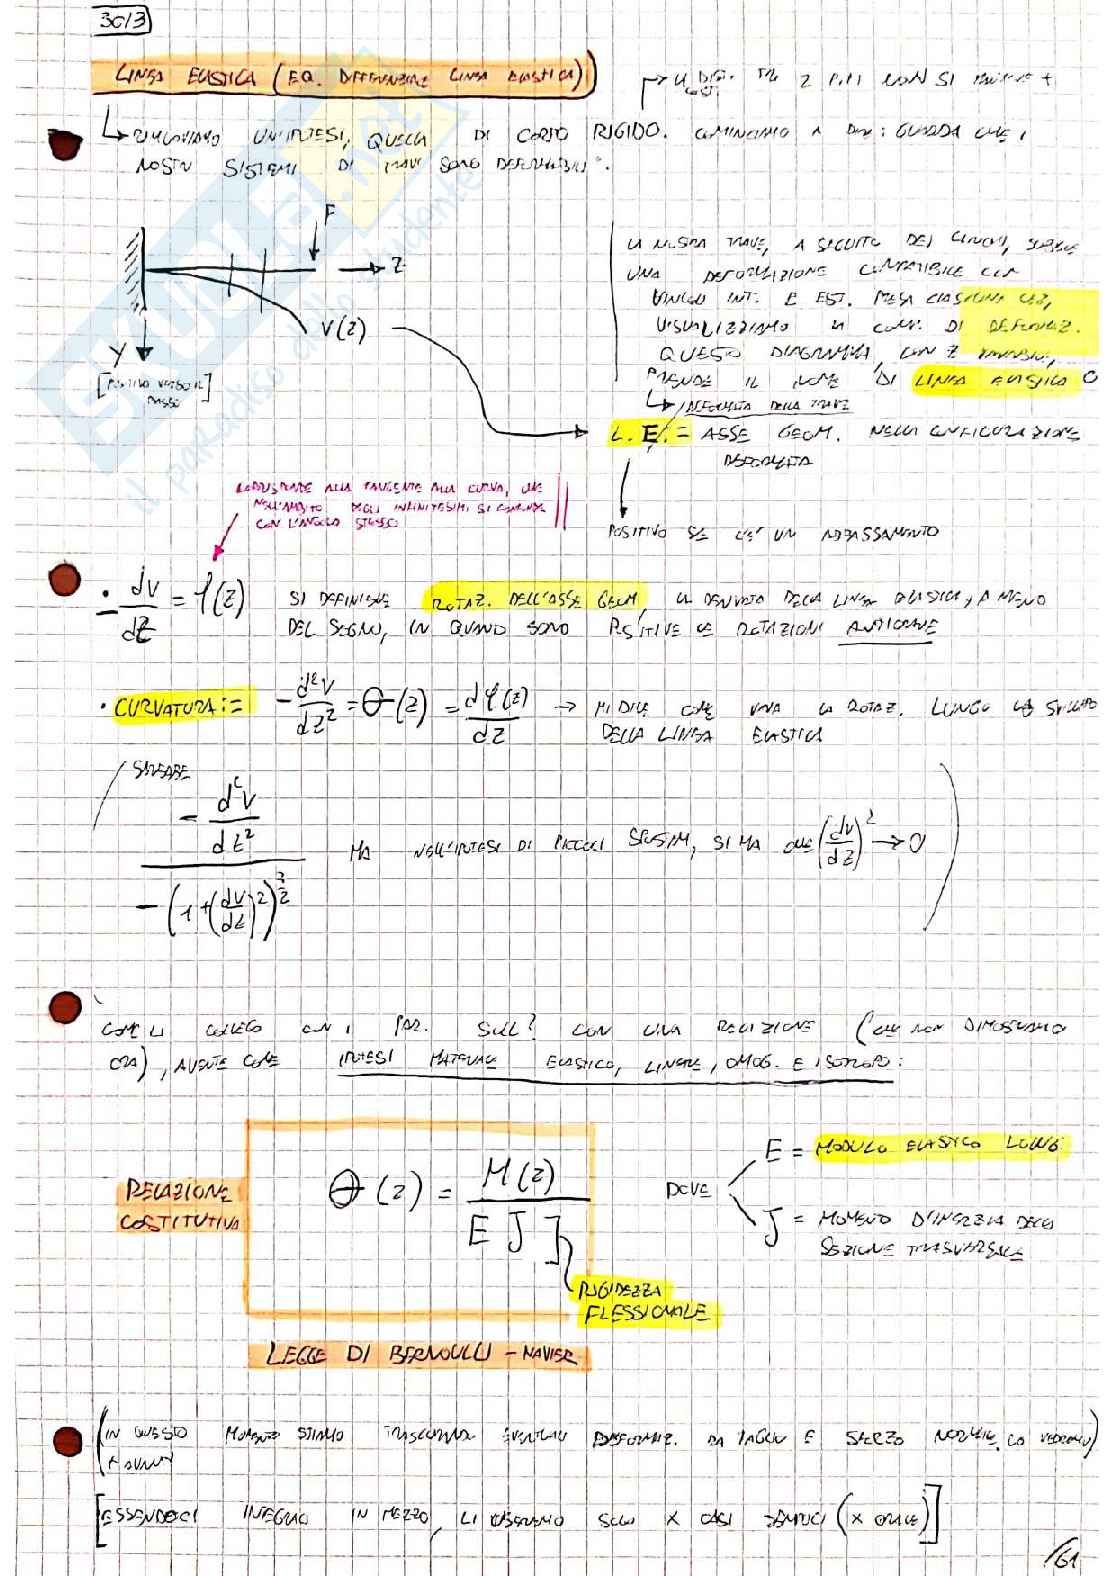 30/3
LINEA ELASTICA (EQ. DIFFERENZIALE LINEA ELASTICA)
LA DIST. TRA 2 P.TI NON SI +
COST
RIMUOVIAMO UN'IPOTESI, QUELLA DI CORPO RIGIDO. COMINCIAMO A DIRE: GUARDA CHE I
NOSTRI SISTEMI DI TRAVI SONO DEFORMABILI".
F
Z
V(Z)
Y
[POSITIVO VERSO IL
BASSO]
LA NOSTRA TRAVE, A SEGUITO DEI CARICHI, SUBISCE
UNA DEFORMAZIONE COMPATIBILE CON
VINCOLI INT. E EST. PRESA CIASCUNA
VISUALIZZIAMO LA CONF. DI DEFORMAZ.
QUESTO DIAGRAMMA, CON Z VARIABILE,
PRENDE IL NOME DI LINEA ELASTICA O
DEFORMATA DELLA TRAVE
L.E. = ASSE GEOM. NELLA CONFIGURAZIONE
DEFORMATA
POSITIVO SE C'E' UN ABBASSAMENTO
CORRISPONDE ALLA TANGENTE ALLA CURVA, CHE
NELL'AMBITO DEGLI INFINITESIMI SI CONFONDE
CON L'ANGOLO STESSO
- dv/dz = φ(z) SI DEFINISCE ROTAZ. DELL'ASSE GEOM, LA DERIVATA DELLA LINEA ELASTICA, A MENO
DEL SEGNO, IN QUANTO SONO POSITIVE LE ROTAZIONI ANTIORARIE
• CURVATURA := - d²v/dz² = θ(z) = dφ(z)/dz → MI DICE COME VARIA LA ROTAZ. LUNGO LO SVILUPPO
DELLA LINEA ELASTICA
SAREBBE
- d²v/dz² / - (1+(dv/dz)²)^3/2 MA NELL'IPOTESI DI PICCOLI SPOSTAM, SI HA CHE (dv/dz)² → 0
COME LI COLLEGO CON I PAR. SOLL? CON UNA RELAZIONE (CHE NON DIMOSTRIAMO
ORA), AVENTE COME IPOTESI MATERIALE ELASTICO, LINEARE, OMOG. E ISOTROPO:
RELAZIONE
COSTITUTIVA
θ(z) = M(z)/EJ
RIGIDEZZA
FLESSIONALE
DOVE
E = MODULO ELASTICO LONG
J = MOMENTO D'INERZIA DELLA
SEZIONE TRASVERSALE
LEGGE DI BERNOULLI - NAVIER
(IN QUESTO MOMENTO STIAMO TRASCURANDO EVENTUALI DEFORMAZ. DA TAGLIO E SFORZO NORMALE, LO VEDREMO
+ AVANTI)
[ESSENDOCI INTEGRALI IN MEZZO, LI SOLO X CASI SEMPLICI (X ORA)]
/61
SKUOLA.net
il paradiso dello studente